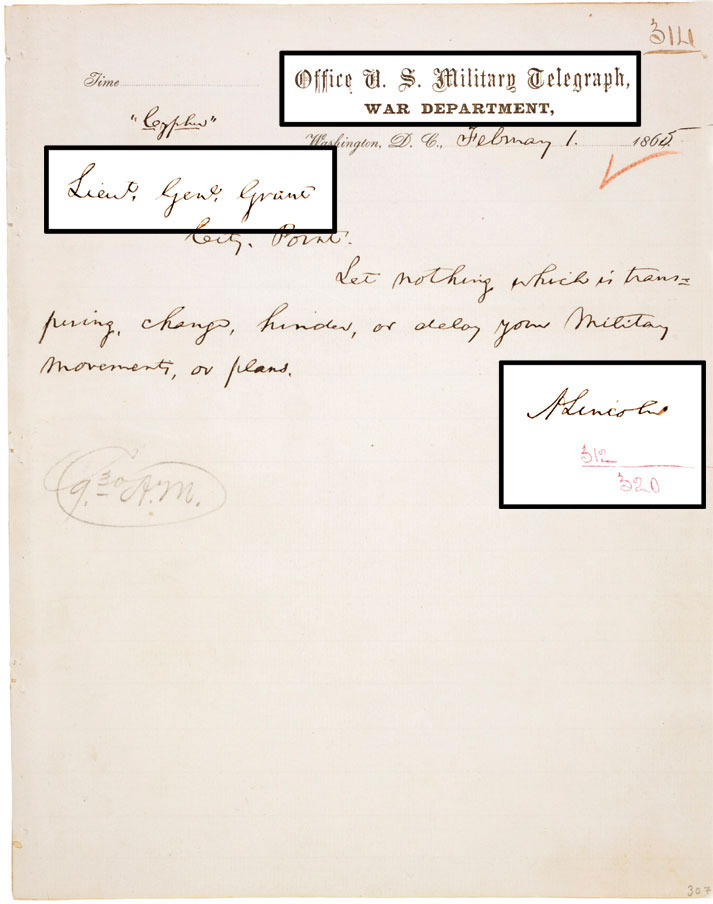 314
Time
Office U. S. Military Telegraph,
WAR DEPARTMENT,
"Cypher"
Washington, D. C., February 1. 1865
Lieut. Genl. Grant
City. Point.
Let nothing which is trans=
piring, change, hinder, or delay your Military
movements, or plans.
A Lincoln
312
320
9.30 A.M.
307